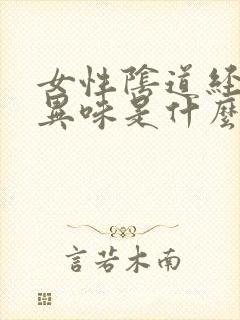 女性陰道経
異味是什麼
言若木南